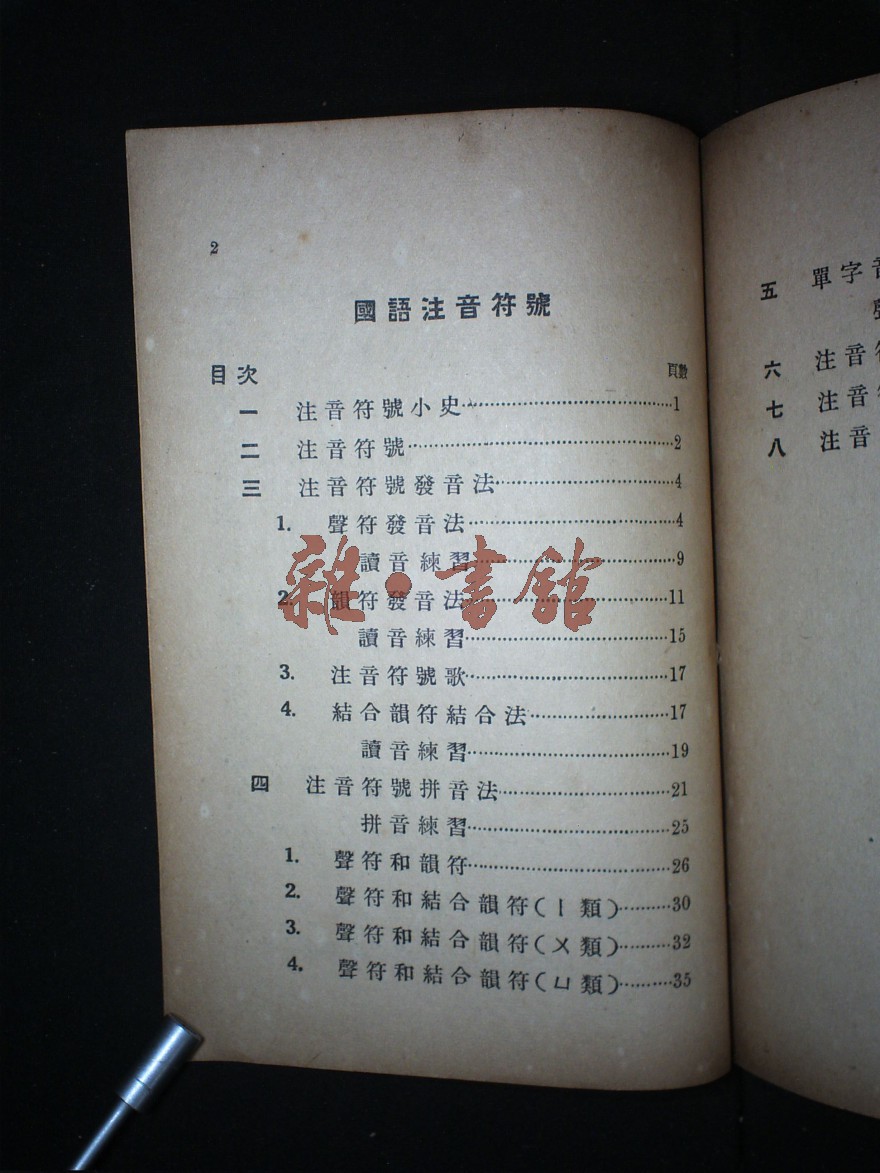 2
國語注音符號
目次 頁數
一 注音符號小史……1
二 注音符號……2
三 注音符號發音法……4
1. 聲符發音法……4
讀音練習……9
2. 韻符發音法……11
讀音練習……15
3. 注音符號歌……17
4. 結合韻符結合法……17
讀音練習……19
四 注音符號拼音法……21
拼音練習……25
1. 聲符和韻符……26
2. 聲符和結合韻符(丨類)……30
3. 聲符和結合韻符(ㄨ類)……32
4. 聲符和結合韻符(ㄩ類)……35
雜·書館
五 單字音
六 注音符
七 注音符
八 注音